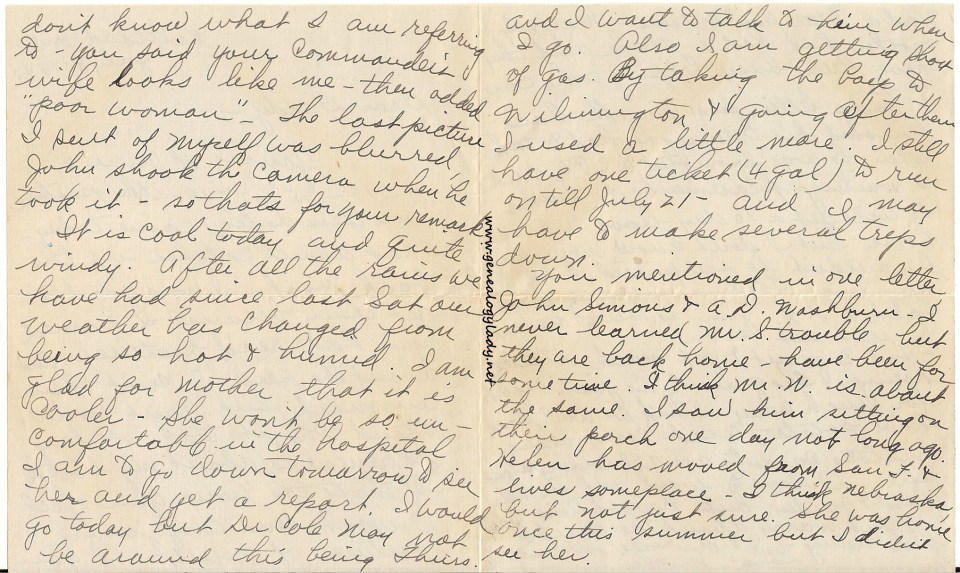 don't know what I am referring
to - you said your commander's
wife looks like me - then added
"poor woman" - The last picture
I sent of myself was blurred,
John shook the camera when he
took it - so thats for your remark.
It is cool today and quite
windy. After all the rains we
have had since last Sat our
weather has changed from
being so hot & humid. I am
glad for mother that it is
cooler - She won't be so un-
comfortable in the hospital
I am to go down tomorrow to see
her and get a report. I would
go today but Dr Cole may not
be around this being Thurs.
and I want to talk to him when
I go. Also I am getting short
of gas. By taking the boys to
Wilmington & going after them
I used a little more. I still
have one ticket (4 gal) to run
on till July 21 - and I may
have to make several treps
down.
You mentioned in one letter
John Simons & A. D. Washburn - I
never learned Mr. S. trouble, but
they are back home - have been for
sometime. I think Mr. W. is about
the same. I saw him sitting on
their porch one day not long ago.
Helen has moved from San F. &
lives someplace - I think Nebraska
but not just sure. She was home
once this summer but I didn't
see her.
www.genealogylady.net